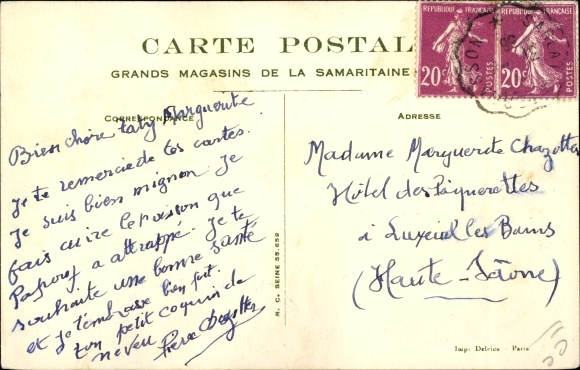 CARTE POSTALE
GRANDS MAGASINS DE LA SAMARITAINE
REPUBLIQUE FRANÇAISE
20c
POSTES
REPUBLIQUE FRANÇAISE
20c
POSTES
CORRESPONDANCE
Bien chère taty Marguerite
je te remercie de tes cartes.
Je suis bien mignon. Je
fais cuire le poisson que
Papouf a attrappé. Je te
souhaite une bonne santé
et je t'embrasse bien fort.
ton petit coquin de
neveu Pierre Chazottes
R. C. SEINE 55.659
ADRESSE
Madame Marguerite Chazottes
Hôtel des Pâquerettes
à Luxeuil les Bains
(Haute-Saône)
Imp. Delrieu - Paris